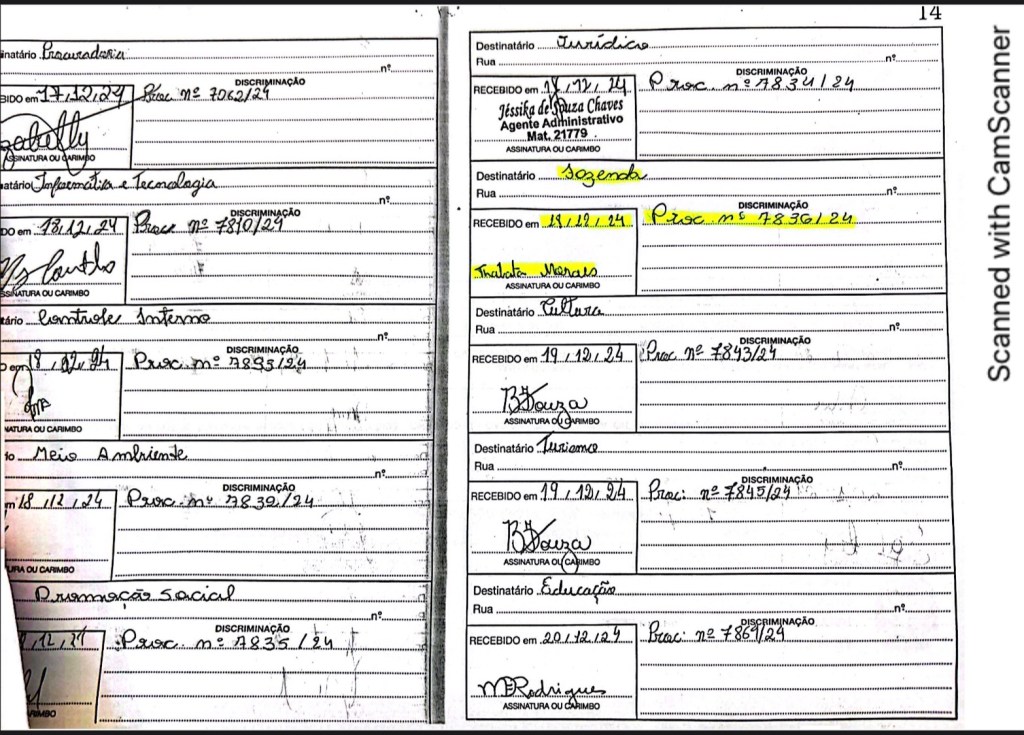 inatário Procuradoria
nº
DISCRIMINAÇÃO
BIDO em 17,12,24 Proc. nº 7062/24
ASSINATURA OU CARIMBO
atário Informática e Tecnologia
nº
DISCRIMINAÇÃO
DO em 18,12,24 Proc nº 7810/24
SSINATURA OU CARIMBO
tário Controle Interno
nº
DISCRIMINAÇÃO
18,12,24 Proc. nº 7895/24
NATURA OU CARIMBO
to Meio Ambiente
nº
DISCRIMINAÇÃO
m 18,12,24 Proc. nº 7832/24
URA OU CARIMBO
Promoção Social
nº
DISCRIMINAÇÃO
Proc. nº 7835/24
ARIMBO
14
Destinatário Jurídico
Rua nº
DISCRIMINAÇÃO
RECEBIDO em 18,12,24 Proc. nº 7834/24
Jéssika de Souza Chaves
Agente Administrativo
Mat. 21779
ASSINATURA OU CARIMBO
Destinatário Fazenda
Rua nº
DISCRIMINAÇÃO
RECEBIDO em 18,12,24 Proc nº 7836/24
Morais
ASSINATURA OU CARIMBO
Destinatário Cultura
Rua nº
DISCRIMINAÇÃO
RECEBIDO em 19,12,24 Proc nº 7843/24
BSouza
ASSINATURA OU CARIMBO
Destinatário Turismo
Rua nº
DISCRIMINAÇÃO
RECEBIDO em 19,12,24 Proc: nº 7845/24
BSouza
ASSINATURA OU CARIMBO
Destinatário Educação
Rua nº
DISCRIMINAÇÃO
RECEBIDO em 20,12,24 Proc: nº 7869/24
MERodrigues
ASSINATURA OU CARIMBO
Scanned with CamScanner